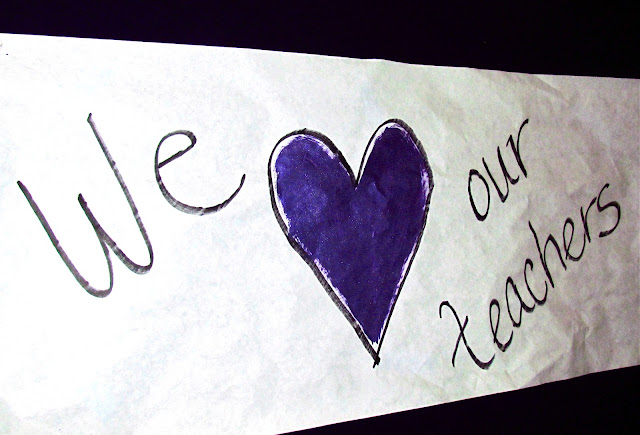 We our
teachers